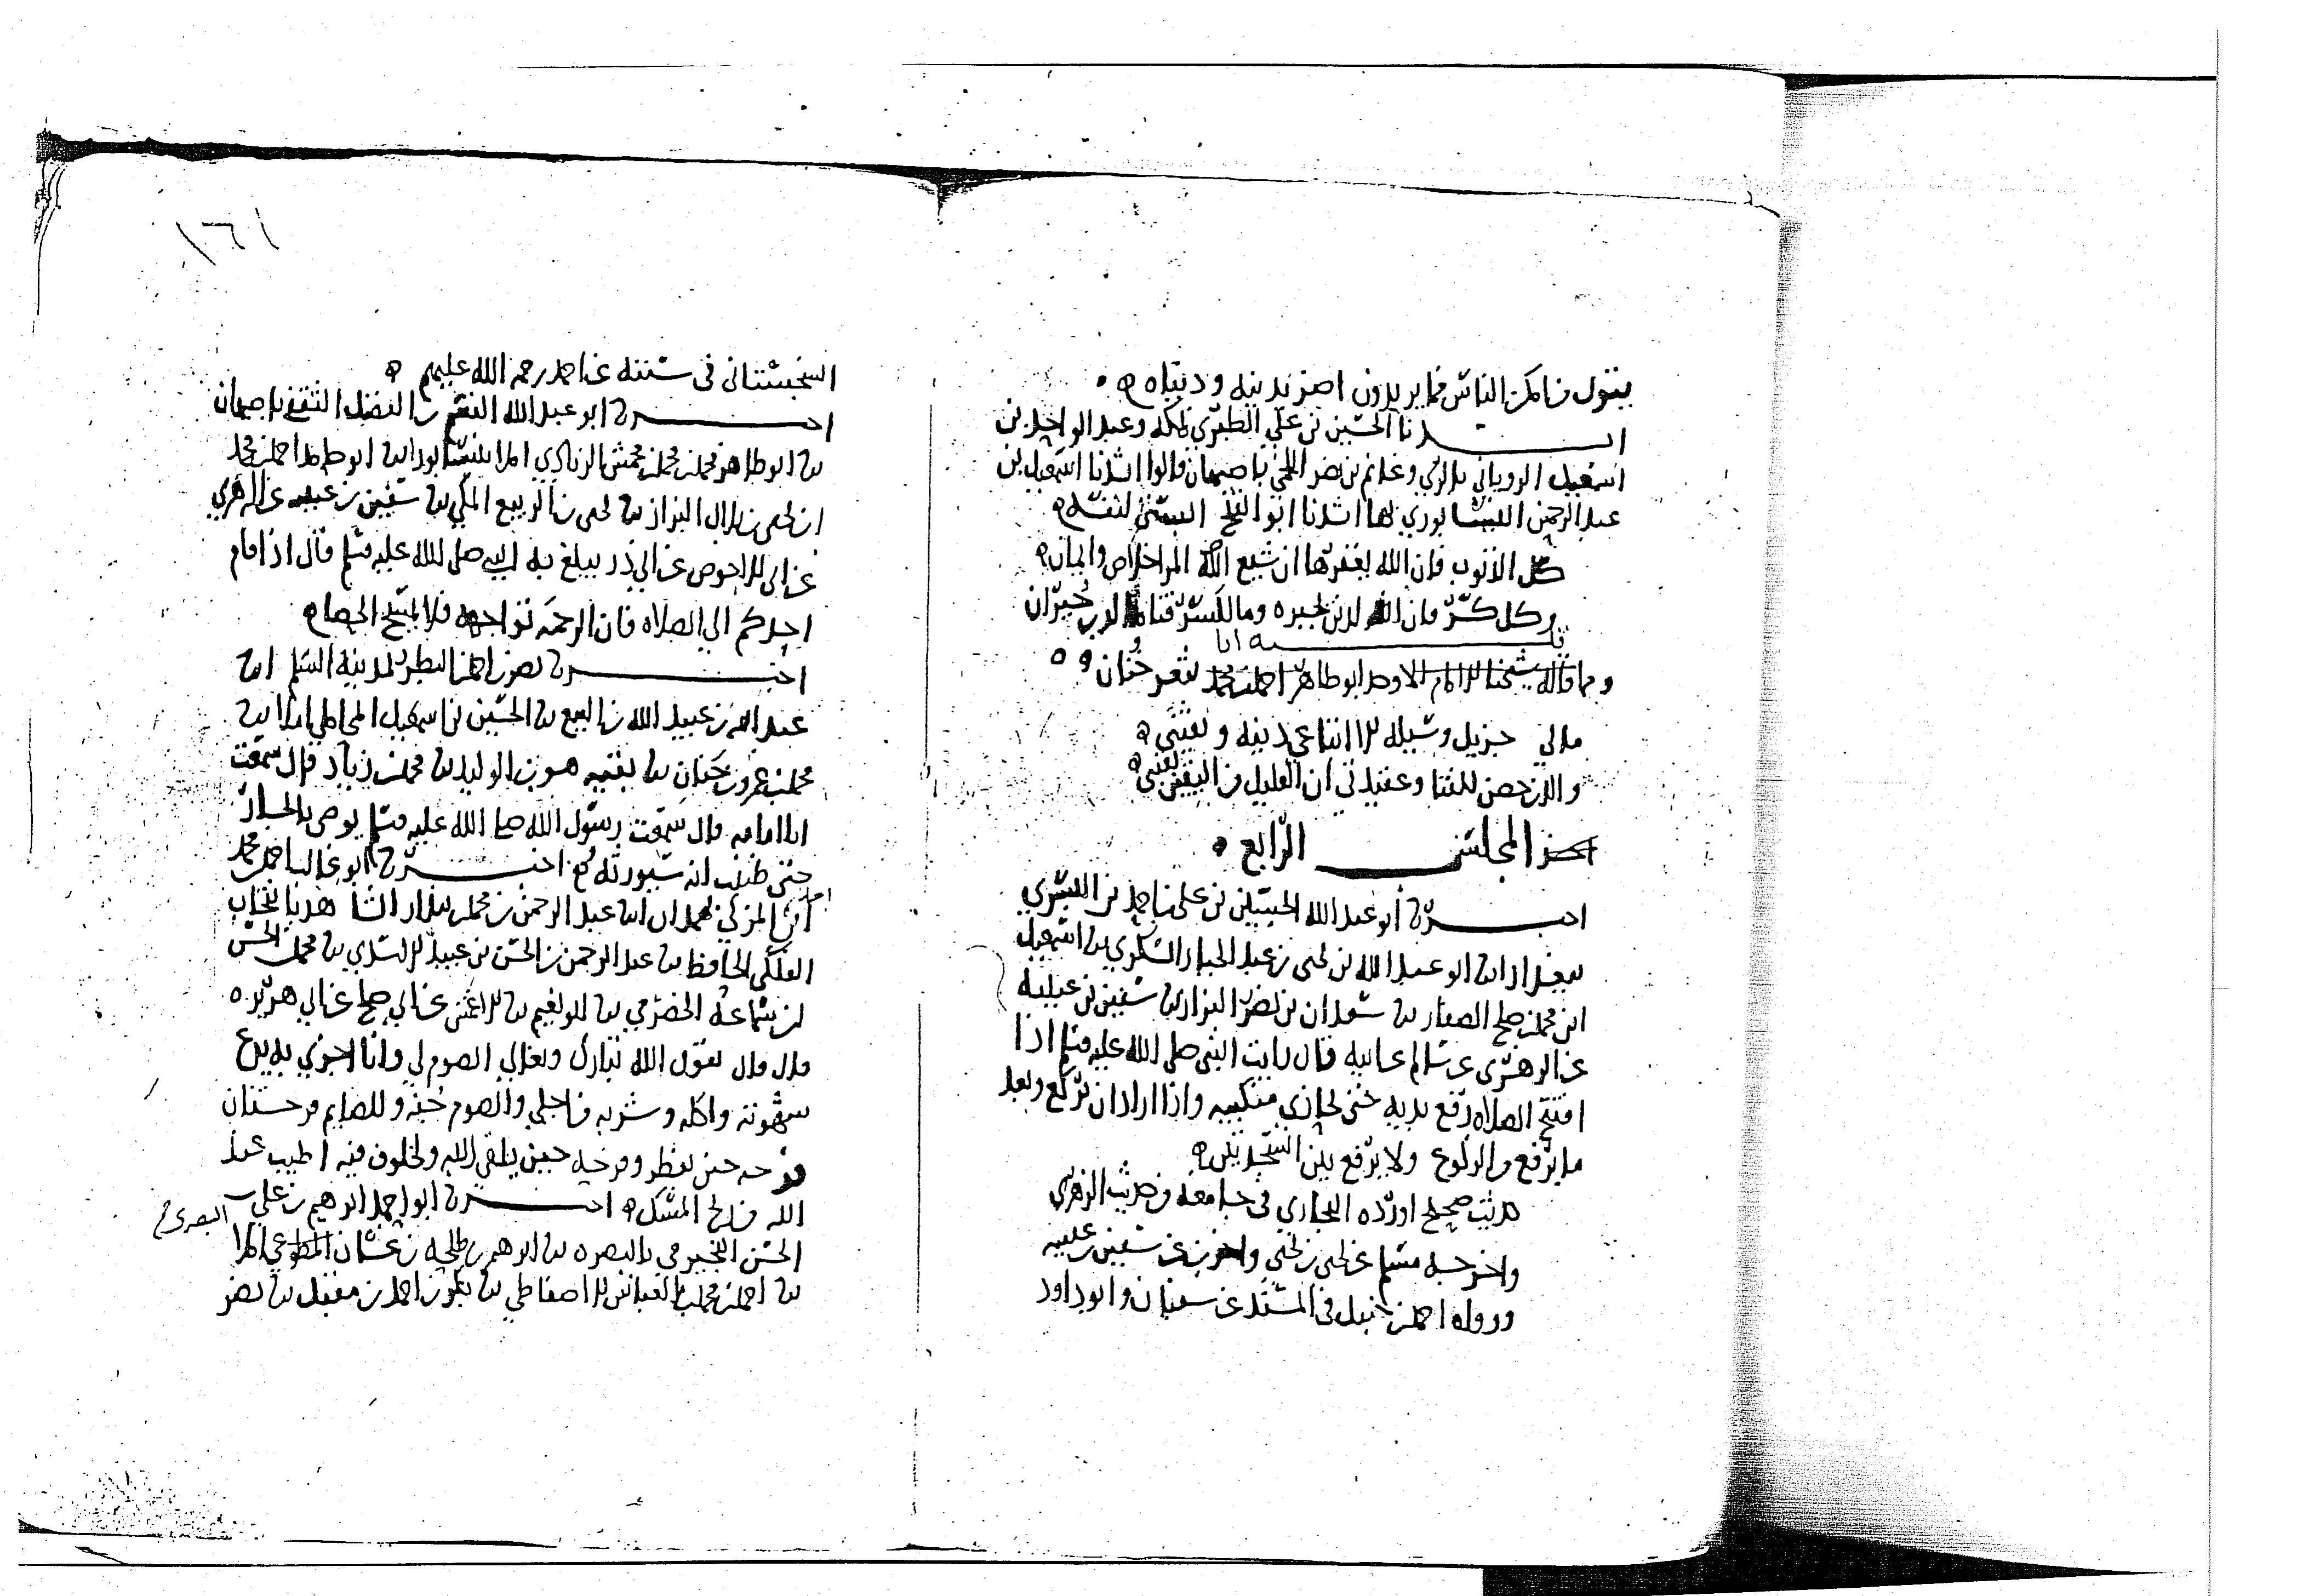 يقول من أمكن الناس فيما يريدون أضر بدينه ودنياه
أنشدنا الحسين بن علي الطبري بمكة وعبد الواحد بن
إسمعيل الروياني بالري وغانم بن نصر بأصبهان قالوا أنشدنا إسمعيل بن
عبد الرحمن النيسابوري بها أنشدنا أبو الفتح البستي لنفسه
كل الذنوب فإن الله يغفرها إن شيع المرء إخلاص وإيمان
وكل كسر فإن الله يجبره وما لكسر قناة الدين جبران
ومما قاله شيخنا الإمام الأوحد أبو طاهر أحمد بن محمد
مالي جزيل وسيلة إلا اتباعي دينه ويقيني
والدين حصن للفتى وعقيدتي أن القليل من اليقين يقيني
آخر المجلس الرابع
أخبرنا أبو عبد الله الحسين بن علي بن أحمد بن البسري
ببغداد أنا أبو عبد الله بن يحيى بن عبد الجبار السكري نا إسمعيل
ابن محمد بن صلح الصفار نا سعدان بن نصر البزاز نا سفين بن عيينة
عن الزهري عن سالم عن أبيه قال رأيت النبي صلى الله عليه وسلم إذا
افتتح الصلاة رفع يديه حتى يحاذي منكبيه وإذا أراد أن يركع وبعد
ما يرفع من الركوع ولا يرفع بين السجدتين
حديث صحيح أورده البخاري في جامعه من حديث الزهري
وأخرجه مسلم عن يحيى بن يحيى وآخرين عن سفين بن عيينة
ورواه أحمد بن حنبل في المسند عن سفيان وأبو داود
١٦١
السجستاني في سننه عن أحمد رحمة الله عليهم
أخبرنا أبو عبد الله القسم بن الفضل الثقفي بأصبهان
نا أبو طاهر محمد بن محمد بن محمش الزيادي إملاء بنيسابور أنا أبو حامد أحمد بن محمد
ابن يحيى بن بلال البزاز نا يحيى بن الربيع المكي نا سفين بن عيينة عن الزهري
عن أبي الأحوص عن أبي ذر يبلغ به النبي صلى الله عليه وسلم قال إذا قام
أحدكم إلى الصلاة فإن الرحمة تواجهه فلا يمسح الحصا
أخبرنا نصر بن أحمد بن البطر بمدينة السلم أنا
عبد الله بن عبيد الله بن البيع نا الحسين بن إسمعيل المحاملي إملاء نا
محمد بن عمرو بن حنان نا بقية هو ابن الوليد نا محمد بن زياد قال سمعت
أبا أمامة قال سمعت رسول الله صلى الله عليه وسلم يوصي بالجار
حتى ظننت أنه سيورثه أخبرنا أبو غالب أحمد بن محمد
المزكي بهمدان أنا عبد الرحمن بن محمد بن
الفلكي الحافظ نا عبد الرحمن بن الحسن بن عبيد الأسدي نا محمد بن الحسن
ابن سماعة الحضرمي نا أبو نعيم نا الأعمش عن أبي صالح عن أبي هريرة
قال قال يقول الله تبارك وتعالى الصوم لي وأنا أجزي به يدع
شهوته وأكله وشربه من أجلي والصوم جنة وللصائم فرحتان
فرحة حين يفطر وفرحة حين يلقى الله ولخلوف فيه أطيب عند
الله من ريح المسك أخبرنا أبو أحمد إبراهيم بن علي بن
البصري
الحسن النجيرمي بالبصرة نا إبراهيم بن طلحة بن غسان المطوعي إملاء
نا أحمد بن محمد بن العباس الأسفاطي نا بكر بن أحمد بن مقبل نا نصر